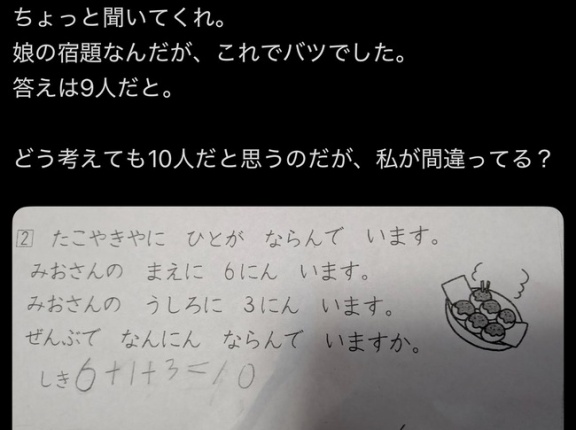 ちょっと聞いてくれ。
娘の宿題なんだが、これでバツでした。
答えは9人だと。
どう考えても10人だと思うのだが、私が間違ってる？
2 たこやきやに ひとが ならんで います。
みおさんの まえに 6にん います。
みおさんの うしろに 3にん います。
ぜんぶで なんにん ならんで いますか。
しき6+1+3=10